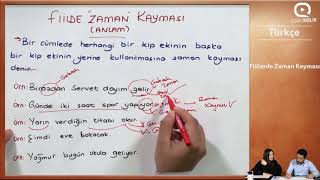 FİİLDE "ZAMAN" KAYMASI
(ANLAM)
* Bir cümlede herhangi bir kip ekinin başka
bir kip ekinin yerine kullanılmasına zaman kayması
denir.
Örn: Birazdan Servet dayım gelir.
Örn: Günde iki saat spor yapıyorum.
Zaman
Kayması
Örn: Yarın verdiğin kitabı okur.
Örn: Şimdi eve bakacak.
Örn: Yağmur bugün okula geliyor.
Türkçe
Fiillerde Zaman Kayması